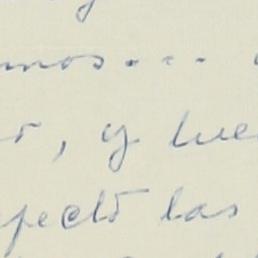 mos....
, y lue
pectó las